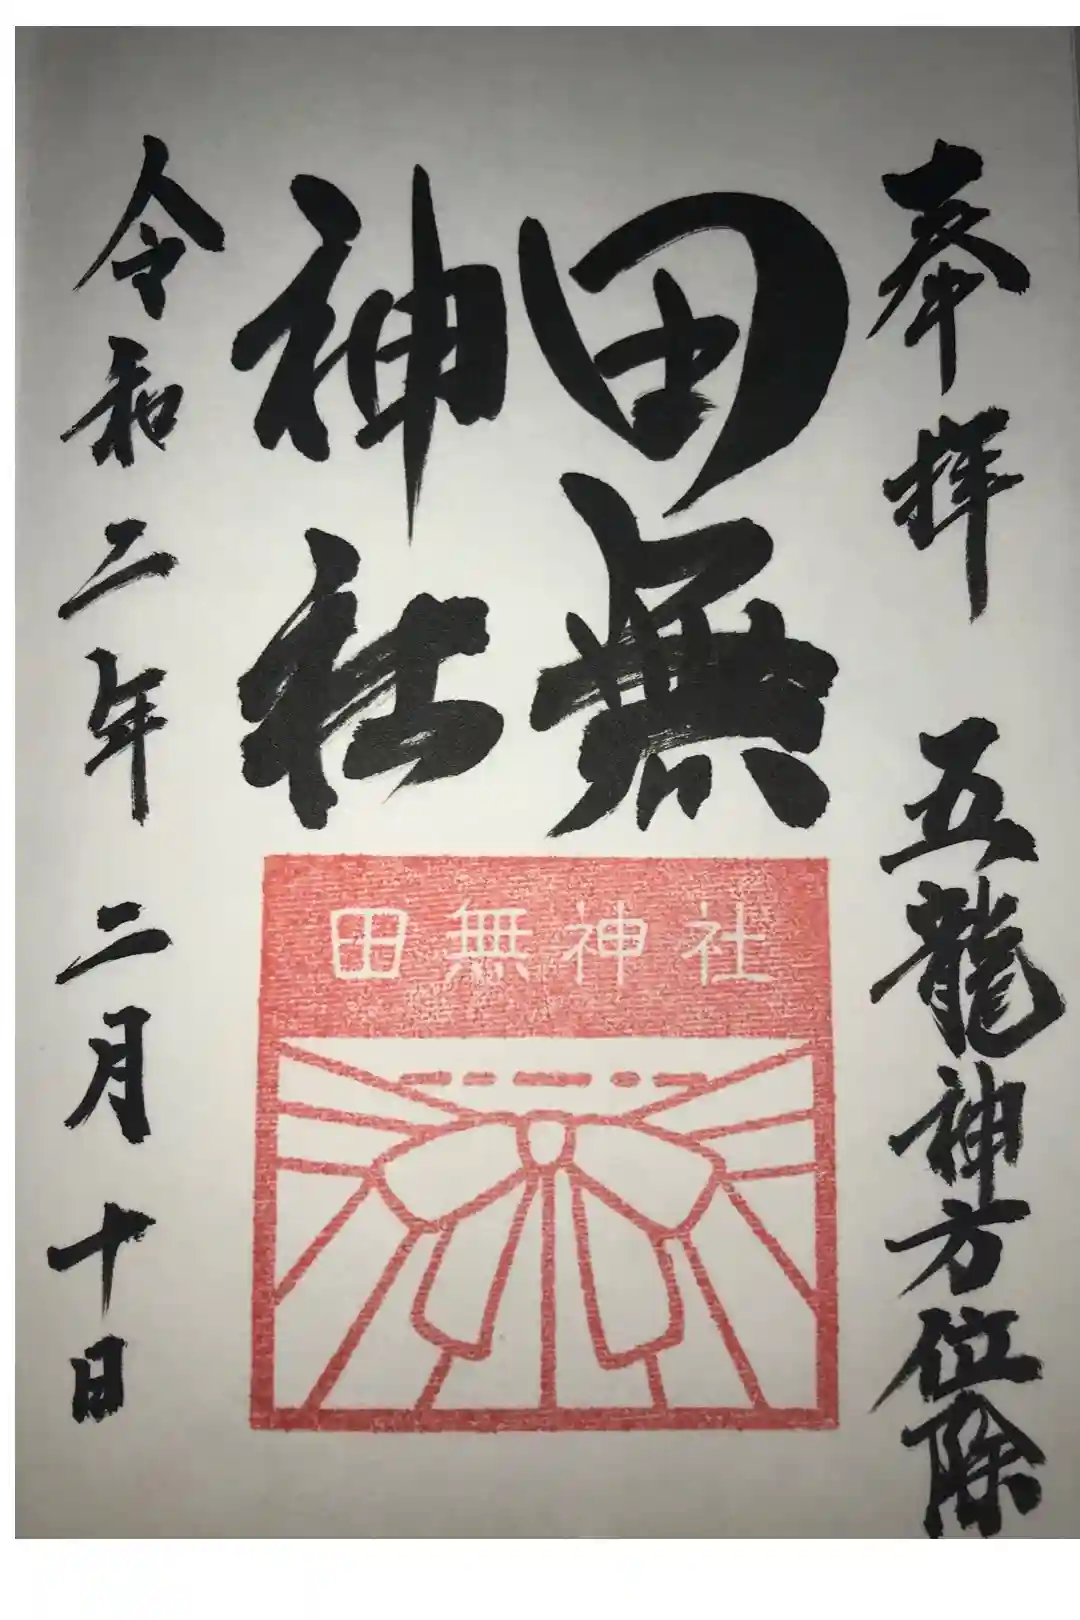 奉拝 五龍神方位除
田無
神社
田無神社
令和二年 二月 十日